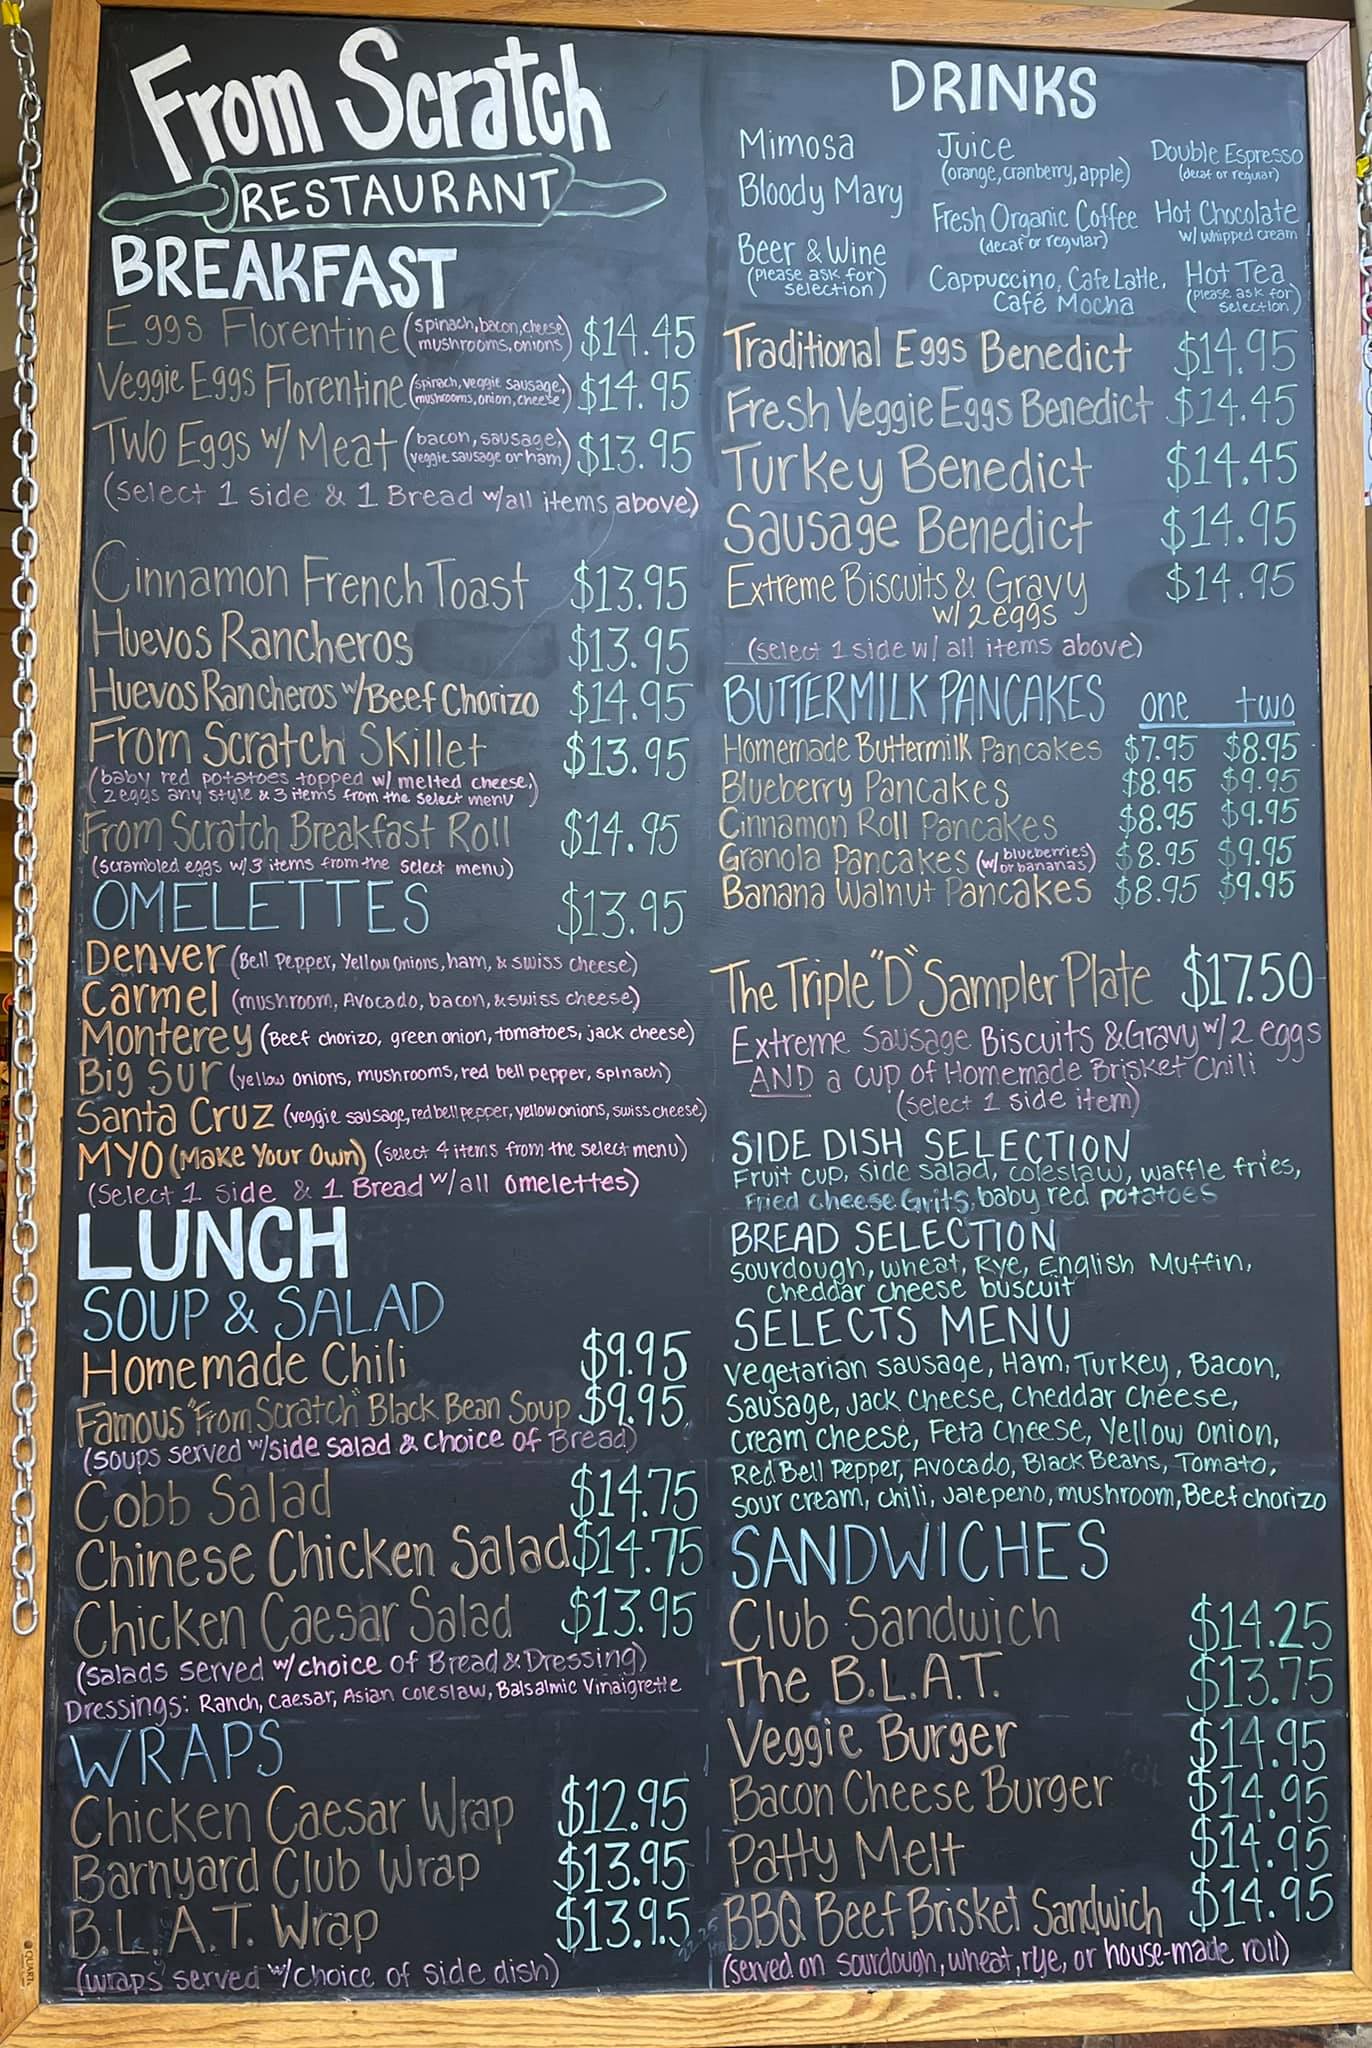 From Scratch
RESTAURANT
BREAKFAST
Eggs Florentine (spinach, bacon, cheese, mushrooms, onions) $14.45
Veggie Eggs Florentine (spinach, veggie sausage, mushrooms, onion, cheese) $14.95
TWO Eggs w/ Meat (bacon, sausage, veggie sausage or ham) $13.95
(Select 1 side & 1 Bread w/all items above)
Cinnamon French Toast $13.95
Huevos Rancheros $13.95
Huevos Rancheros w/Beef Chorizo $14.95
From Scratch Skillet $13.95
(baby red potatoes topped w/ melted cheese,
2 eggs any style & 3 items from the select menu)
From Scratch Breakfast Roll $14.95
(scrambled eggs w/ 3 items from the select menu)
OMELETTES $13.95
Denver (Bell Pepper, Yellow Onions, ham, & swiss cheese)
Carmel (mushroom, Avocado, bacon, & swiss cheese)
Monterey (Beef chorizo, green onion, tomatoes, jack cheese)
Big Sur (yellow onions, mushrooms, red bell pepper, spinach)
Santa Cruz (veggie sausage, red bell pepper, yellow onions, swiss cheese)
MYO (Make Your Own) (select 4 items from the select menu)
(Select 1 side & 1 Bread w/all omelettes)
LUNCH
SOUP & SALAD
Homemade Chili $9.95
Famous "From Scratch" Black Bean Soup $9.95
(soups served w/side salad & choice of Bread)
Cobb Salad $14.75
Chinese Chicken Salad $14.75
Chicken Caesar Salad $13.95
(Salads served w/choice of Bread & Dressing)
Dressings: Ranch, Caesar, Asian Coleslaw, Balsalmic Vinaigrette
WRAPS
Chicken Caesar Wrap $12.95
Barnyard Club Wrap $13.95
B.L.A.T. Wrap $13.95
(wraps served w/choice of side dish)
DRINKS
Mimosa
Bloody Mary
Beer & Wine
(Please ask for selection)
Juice
(orange, cranberry, apple)
Fresh Organic Coffee
(decaf or regular)
Cappuccino, Cafe Latte,
Café Mocha
Double Espresso
(decaf or regular)
Hot Chocolate
w/ whipped cream
Hot Tea
(Please ask for selection)
Traditional Eggs Benedict $14.95
Fresh Veggie Eggs Benedict $14.45
Turkey Benedict $14.45
Sausage Benedict $14.95
Extreme Biscuits & Gravy $14.95
w/ 2 eggs
(select 1 side w/ all items above)
BUTTERMILK PANCAKES one two
Homemade Buttermilk Pancakes $7.95 $8.95
Blueberry Pancakes $8.95 $9.95
Cinnamon Roll Pancakes $8.95 $9.95
Granola Pancakes (w/ blueberries or bananas) $8.95 $9.95
Banana Walnut Pancakes $8.95 $9.95
The Triple "D" Sampler Plate $17.50
Extreme Sausage Biscuits & Gravy w/ 2 eggs
AND a cup of Homemade Brisket Chili
(select 1 side item)
SIDE DISH SELECTION
Fruit cup, side salad, coleslaw, waffle fries,
Fried Cheese Grits, baby red potatoes
BREAD SELECTION
sourdough, wheat, Rye, English Muffin,
cheddar cheese buscuit
SELECTS MENU
vegetarian sausage, Ham, Turkey, Bacon,
Sausage, Jack Cheese, Cheddar Cheese,
Cream Cheese, Feta Cheese, Yellow onion,
Red Bell Pepper, Avocado, Black Beans, Tomato,
sour cream, chili, Jalepeno, mushroom, Beef chorizo
SANDWICHES
Club Sandwich $14.25
The B.L.A.T. $13.75
Veggie Burger $14.95
Bacon Cheese Burger $14.95
Patty Melt $14.95
BBQ Beef Brisket Sandwich $14.95
(served on sourdough, wheat, rye, or house-made roll)